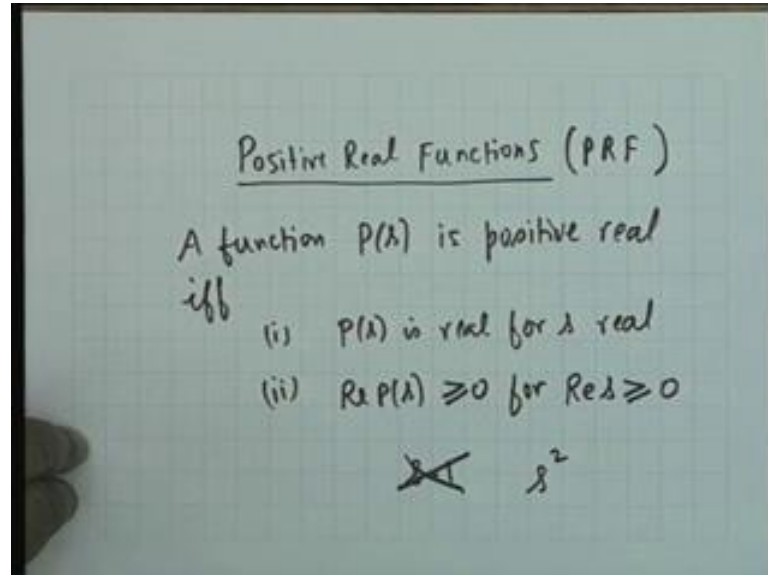 Positive Real Functions (PRF)
A function P(s) is positive real
iff
(i) P(s) is real for s real
(ii) Re P(s) ≥ 0 for Re s ≥ 0
s²